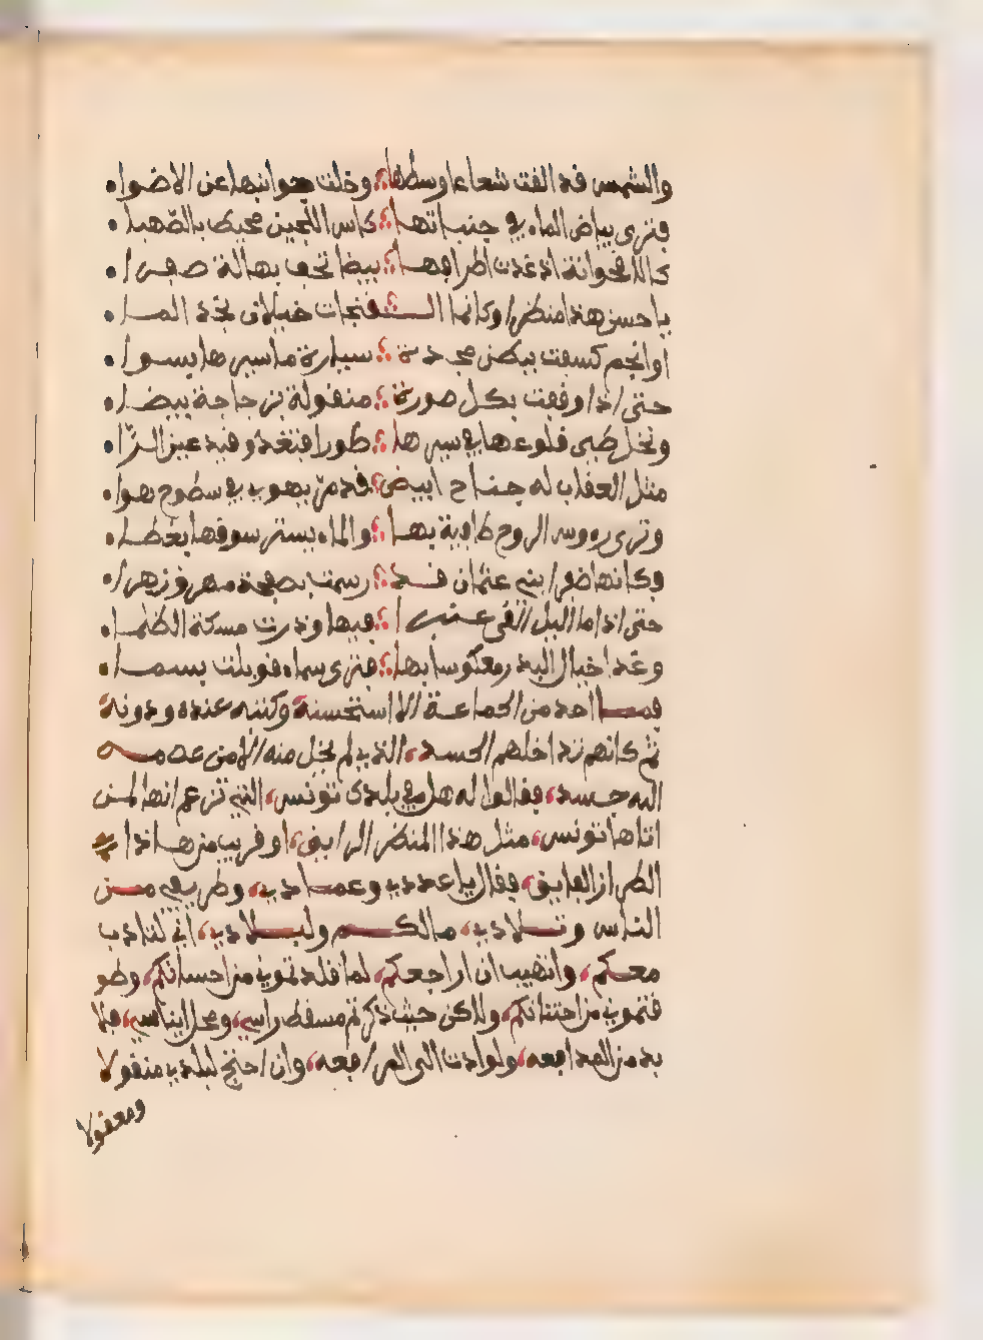 والشمس قد القت شعاعا وسطها؛ وخلت جوانبها عن الاضواء
فترى بياض الماء في جنباتها؛ كاس اللجين محيط بالصهباء
كالاقحوانة اذ غدت اطرافها؛ بيضا تحف بهالة صفراء
يا حسن هذا منظرا وكانما الشفنجات خيلان بخد الماء
او انجم كسفت ببطن مجرة؛ سيارة ما سيرها بسواء
حتى اذا وقفت بكل صورة؛ منقولة بزجاجة بيضاء
وتخل قلوعها في سيرها؛ طورا فتغدو قيد عين الراء
مثل العقاب له جناح ابيض؛ قد مر يهوي في سطوح هواء
وترى رءوس الروح طافية بها؛ والماء يستر سوقها بغطاء
وكانها ابني عثمان قد؛ رسمت بصفحة مهرق زهراء
حتى اذا ما اليل القى عنبرا؛ فيها وذرت مسكة الظلماء
وغدا خيال البدر معكوسا بها؛ فترى سماء قوبلت بسماء
فما احد من الجماعة الا استحسنه وكتبه عنده ودونه
ثم كانهم تداخلهم الحسد، الذي لم يخل منه الا من عدمه
اليه جسد، فقالوا له هل في بلدك تونس، التي تزعم انها لمن
اتاها تونس، مثل هذا المنظر الرايق، او قريب من هاذا
الطراز الفايق، فقال يا عددي وعمادي، وطريفي من
الناس وتلادي، مالكم ولبلادي، اني لنادب
معكم، واتهيب ان اراجعكم، لما قلدتموني من احسانكم، وطو
قتموني من امتنانكم، ولاكن حيث ذكرتم مسقط راسي، ومحل ايناسي، فلا
بد من المدافعه، ولو ادت الى المرافعه، وان احتج لبلدي منقولا
ومعقولا